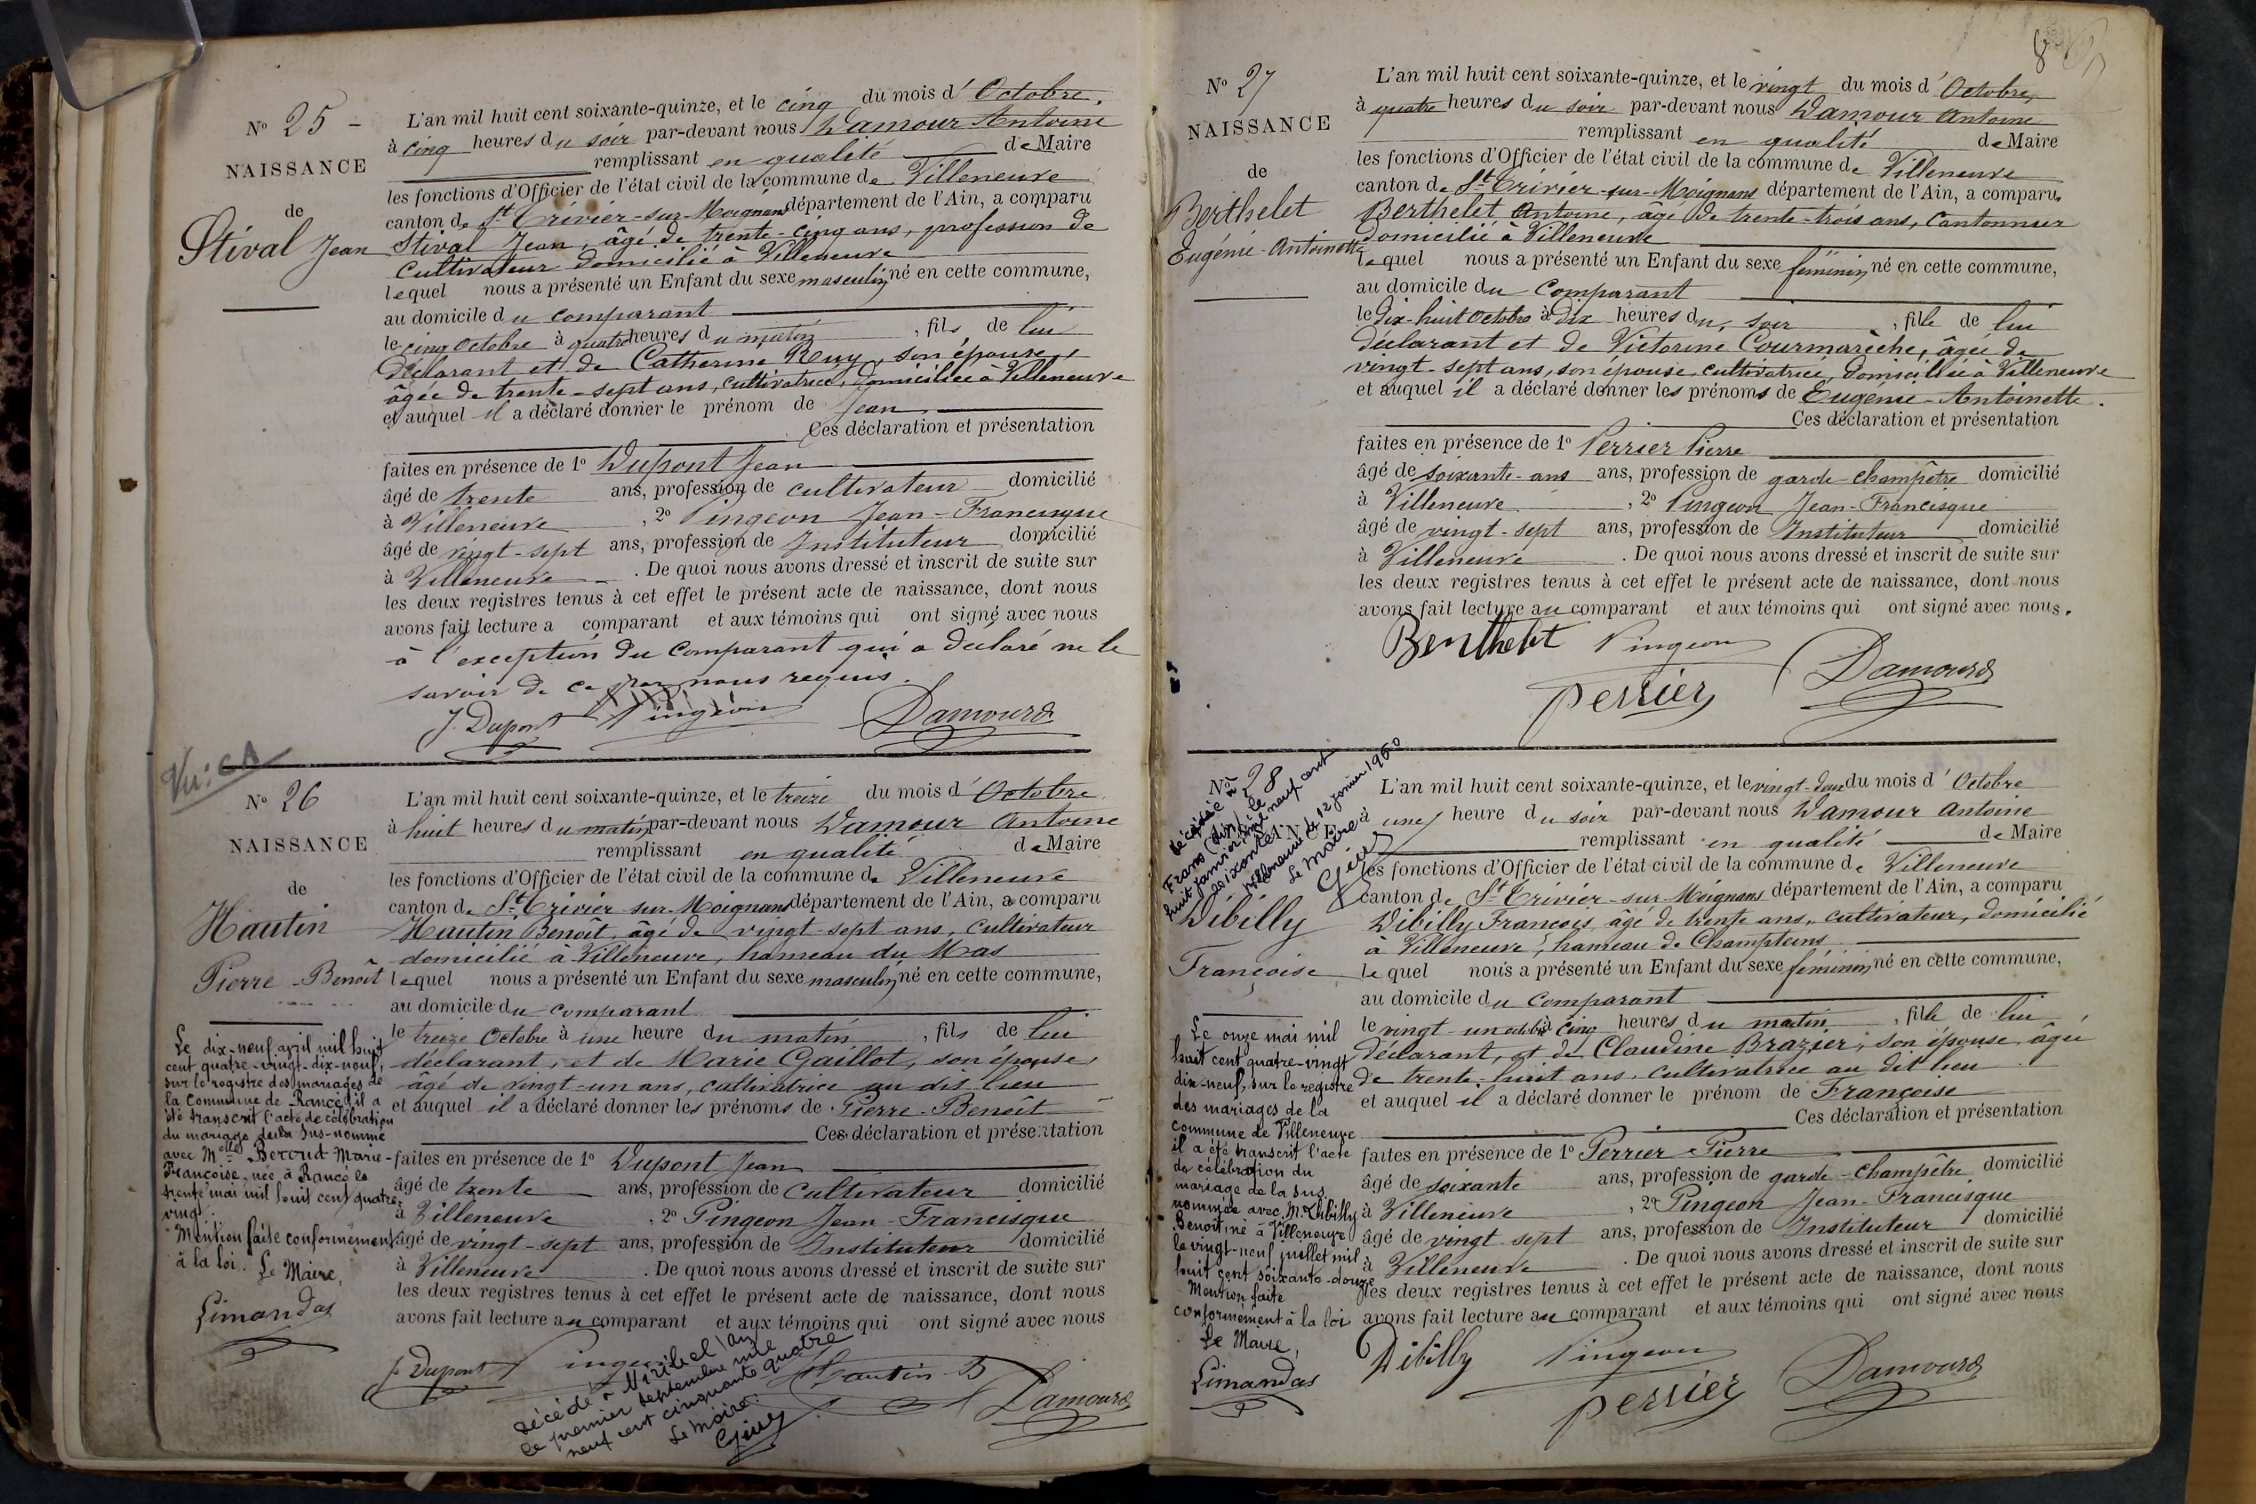 N° 25 -
NAISSANCE
de
Stival Jean
L'an mil huit cent soixante-quinze, et le cinq du mois d' Octobre,
à cinq heures du soir par-devant nous Damour Antoine
remplissant en qualité de Maire
les fonctions d'Officier de l'état civil de la commune de Villeneuve
canton de St Trivier-sur-Moignans département de l'Ain, a comparu
Stival Jean, âgé de trente-cinq ans, profession de
cultivateur domicilié à Villeneuve
lequel nous a présenté un Enfant du sexe masculin né en cette commune,
au domicile du comparant
le cinq Octobre à quatre heures du matin, fils de lui
déclarant et de Catherine Ruy, son épouse,
âgée de trente-sept ans, cultivatrice, domiciliée à Villeneuve
et auquel il a déclaré donner le prénom de Jean
Ces déclaration et présentation
faites en présence de 1° Dupont Jean
âgé de trente ans, profession de cultivateur domicilié
à Villeneuve, 2° Pingeon Jean-Francisque
âgé de vingt-sept ans, profession de Instituteur domicilié
à Villeneuve. De quoi nous avons dressé et inscrit de suite sur
les deux registres tenus à cet effet le présent acte de naissance, dont nous
avons fait lecture a comparant et aux témoins qui ont signé avec nous
à l'exception du comparant qui a déclaré ne le
savoir de ce par nous requis.
J. Dupont Pingeon Damour
Vu: CA
N° 26
NAISSANCE
de
Hautin
Pierre-Benoît
L'an mil huit cent soixante-quinze, et le treize du mois d' Octobre
à huit heures du matin par-devant nous Damour Antoine
remplissant en qualité de Maire
les fonctions d'Officier de l'état civil de la commune de Villeneuve
canton de St Trivier sur Moignans département de l'Ain, a comparu
Hautin Benoît, âgé de vingt-sept ans, cultivateur
domicilié à Villeneuve, hameau du Mas
lequel nous a présenté un Enfant du sexe masculin né en cette commune,
au domicile du comparant
le treize Octobre à une heure du matin, fils de lui
déclarant, et de Marie Gaillot, son épouse,
âgé de vingt-un ans, cultivatrice au dit lieu
et auquel il a déclaré donner les prénoms de Pierre-Benoît
Ces déclaration et présentation
faites en présence de 1° Dupont Jean
âgé de trente ans, profession de cultivateur domicilié
à Villeneuve, 2° Pingeon Jean-Francisque
âgé de vingt-sept ans, profession de Instituteur domicilié
à Villeneuve. De quoi nous avons dressé et inscrit de suite sur
les deux registres tenus à cet effet le présent acte de naissance, dont nous
avons fait lecture au comparant et aux témoins qui ont signé avec nous
J. Dupont Pingeon Hautin B Damour
Le dix-neuf avril mil huit
cent quatre-vingt-dix-neuf,
sur le registre des mariages de
la Commune de Rancé, il a
été transcrit l'acte de célébration
du mariage du sus-nommé
avec Melle Beroud Marie-
Françoise, née à Rancé le
trente mai mil huit cent quatre-
vingt.
Mention faite conformément
à la loi. Le Maire,
Limandas
Décédé à Miribel (Ain)
le premier septembre mil
neuf cent cinquante quatre
Le Maire:
N° 27
NAISSANCE
de
Berthelet
Eugénie-Antoinette
L'an mil huit cent soixante-quinze, et le vingt du mois d' Octobre,
à quatre heures du soir par-devant nous Damour Antoine
remplissant en qualité de Maire
les fonctions d'Officier de l'état civil de la commune de Villeneuve
canton de St Trivier-sur-Moignans département de l'Ain, a comparu
Berthelet Antoine, âgé de trente-trois ans, cantonnier
domicilié à Villeneuve
lequel nous a présenté un Enfant du sexe féminin né en cette commune,
au domicile du comparant
le dix-huit octobre à dix heures du soir, fille de lui
déclarant et de Victorine Courmarèche, âgée de
vingt-sept ans, son épouse, cultivatrice, domiciliée à Villeneuve
et auquel il a déclaré donner les prénoms de Eugénie-Antoinette.
Ces déclaration et présentation
faites en présence de 1° Perrier Pierre
âgé de soixante-ans ans, profession de garde-champêtre domicilié
à Villeneuve, 2° Pingeon Jean-Francisque
âgé de vingt-sept ans, profession de Instituteur domicilié
à Villeneuve. De quoi nous avons dressé et inscrit de suite sur
les deux registres tenus à cet effet le présent acte de naissance, dont nous
avons fait lecture au comparant et aux témoins qui ont signé avec nous.
Berthelet Pingeon
Perrier Damour
N° 28
Décédée à
Frans (Ain) le
huit janvier mil neuf cent
soixante
Villeneuve le 12 janvier 1960
Le Maire
Dibilly
Françoise
L'an mil huit cent soixante-quinze, et le vingt-deux du mois d' Octobre
à une heure du soir par-devant nous Damour Antoine
remplissant en qualité de Maire
les fonctions d'Officier de l'état civil de la commune de Villeneuve
canton de St Trivier-sur-Moignans département de l'Ain, a comparu
Dibilly François âgé de trente ans, cultivateur, domicilié
à Villeneuve, hameau de Champteins
lequel nous a présenté un Enfant du sexe féminin né en cette commune,
au domicile du comparant
le vingt-un octobre à cinq heures du matin, fille de lui
déclarant, et de Claudine Brazier, son épouse, âgée
de trente-huit ans, cultivatrice au dit lieu
et auquel il a déclaré donner le prénom de Françoise
Ces déclaration et présentation
faites en présence de 1° Perrier Pierre
âgé de soixante ans, profession de garde-champêtre domicilié
à Villeneuve, 2° Pingeon Jean-Francisque
âgé de vingt sept ans, profession de Instituteur domicilié
à Villeneuve. De quoi nous avons dressé et inscrit de suite sur
les deux registres tenus à cet effet le présent acte de naissance, dont nous
avons fait lecture au comparant et aux témoins qui ont signé avec nous
Dibilly Pingeon
Perrier Damour
Le onze mai mil
huit cent quatre-vingt
dix-neuf, sur le registre
des mariages de la
commune de Villeneuve
il a été transcrit l'acte
de célébration du
mariage de la sus
nommée avec M. Dibilly
Benoît né à Villeneuve
le vingt-neuf juillet mil
huit cent soixante-douze
Mention faite
conformément à la loi
Le Maire,
Limandas